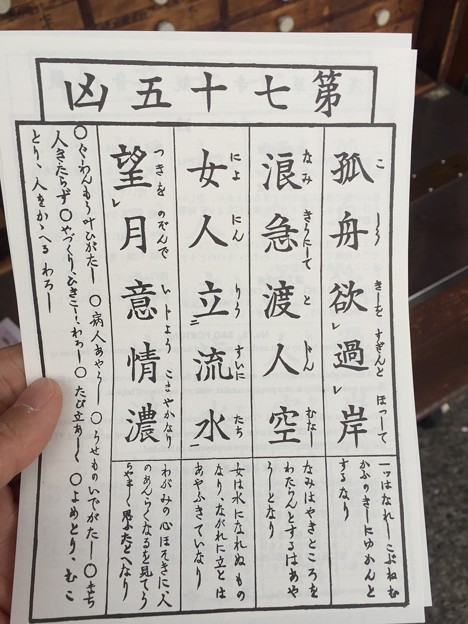 第七十五凶
孤舟欲過岸
こ しう きしを すぎんと ほつして
一ッはなれしこぶねむ
かふのきしにゆかんと
するなり
浪急渡人空
なみ きうにして と じん むなし
なみはやきところを
わたらんとするはあや
うしとなり
女人立流水
によ にん りう すいに たち
女は水になれぬもの
なり、ながれに立とは
あやふきていなり
望月意情濃
つきを のぞんで いじよう こまやかなり
わがみの心ほそきに、人
のあんらくなるを見てう
らやましく思ふたとへなり
〇ぐわんもう叶ひがたし 〇病人あやうし 〇うせものいでがたし 〇まち
人きたらず〇やづくり、ひきこしわろし 〇たび立あしし 〇よめとり、むこ
とり、人をかゝへるわろし